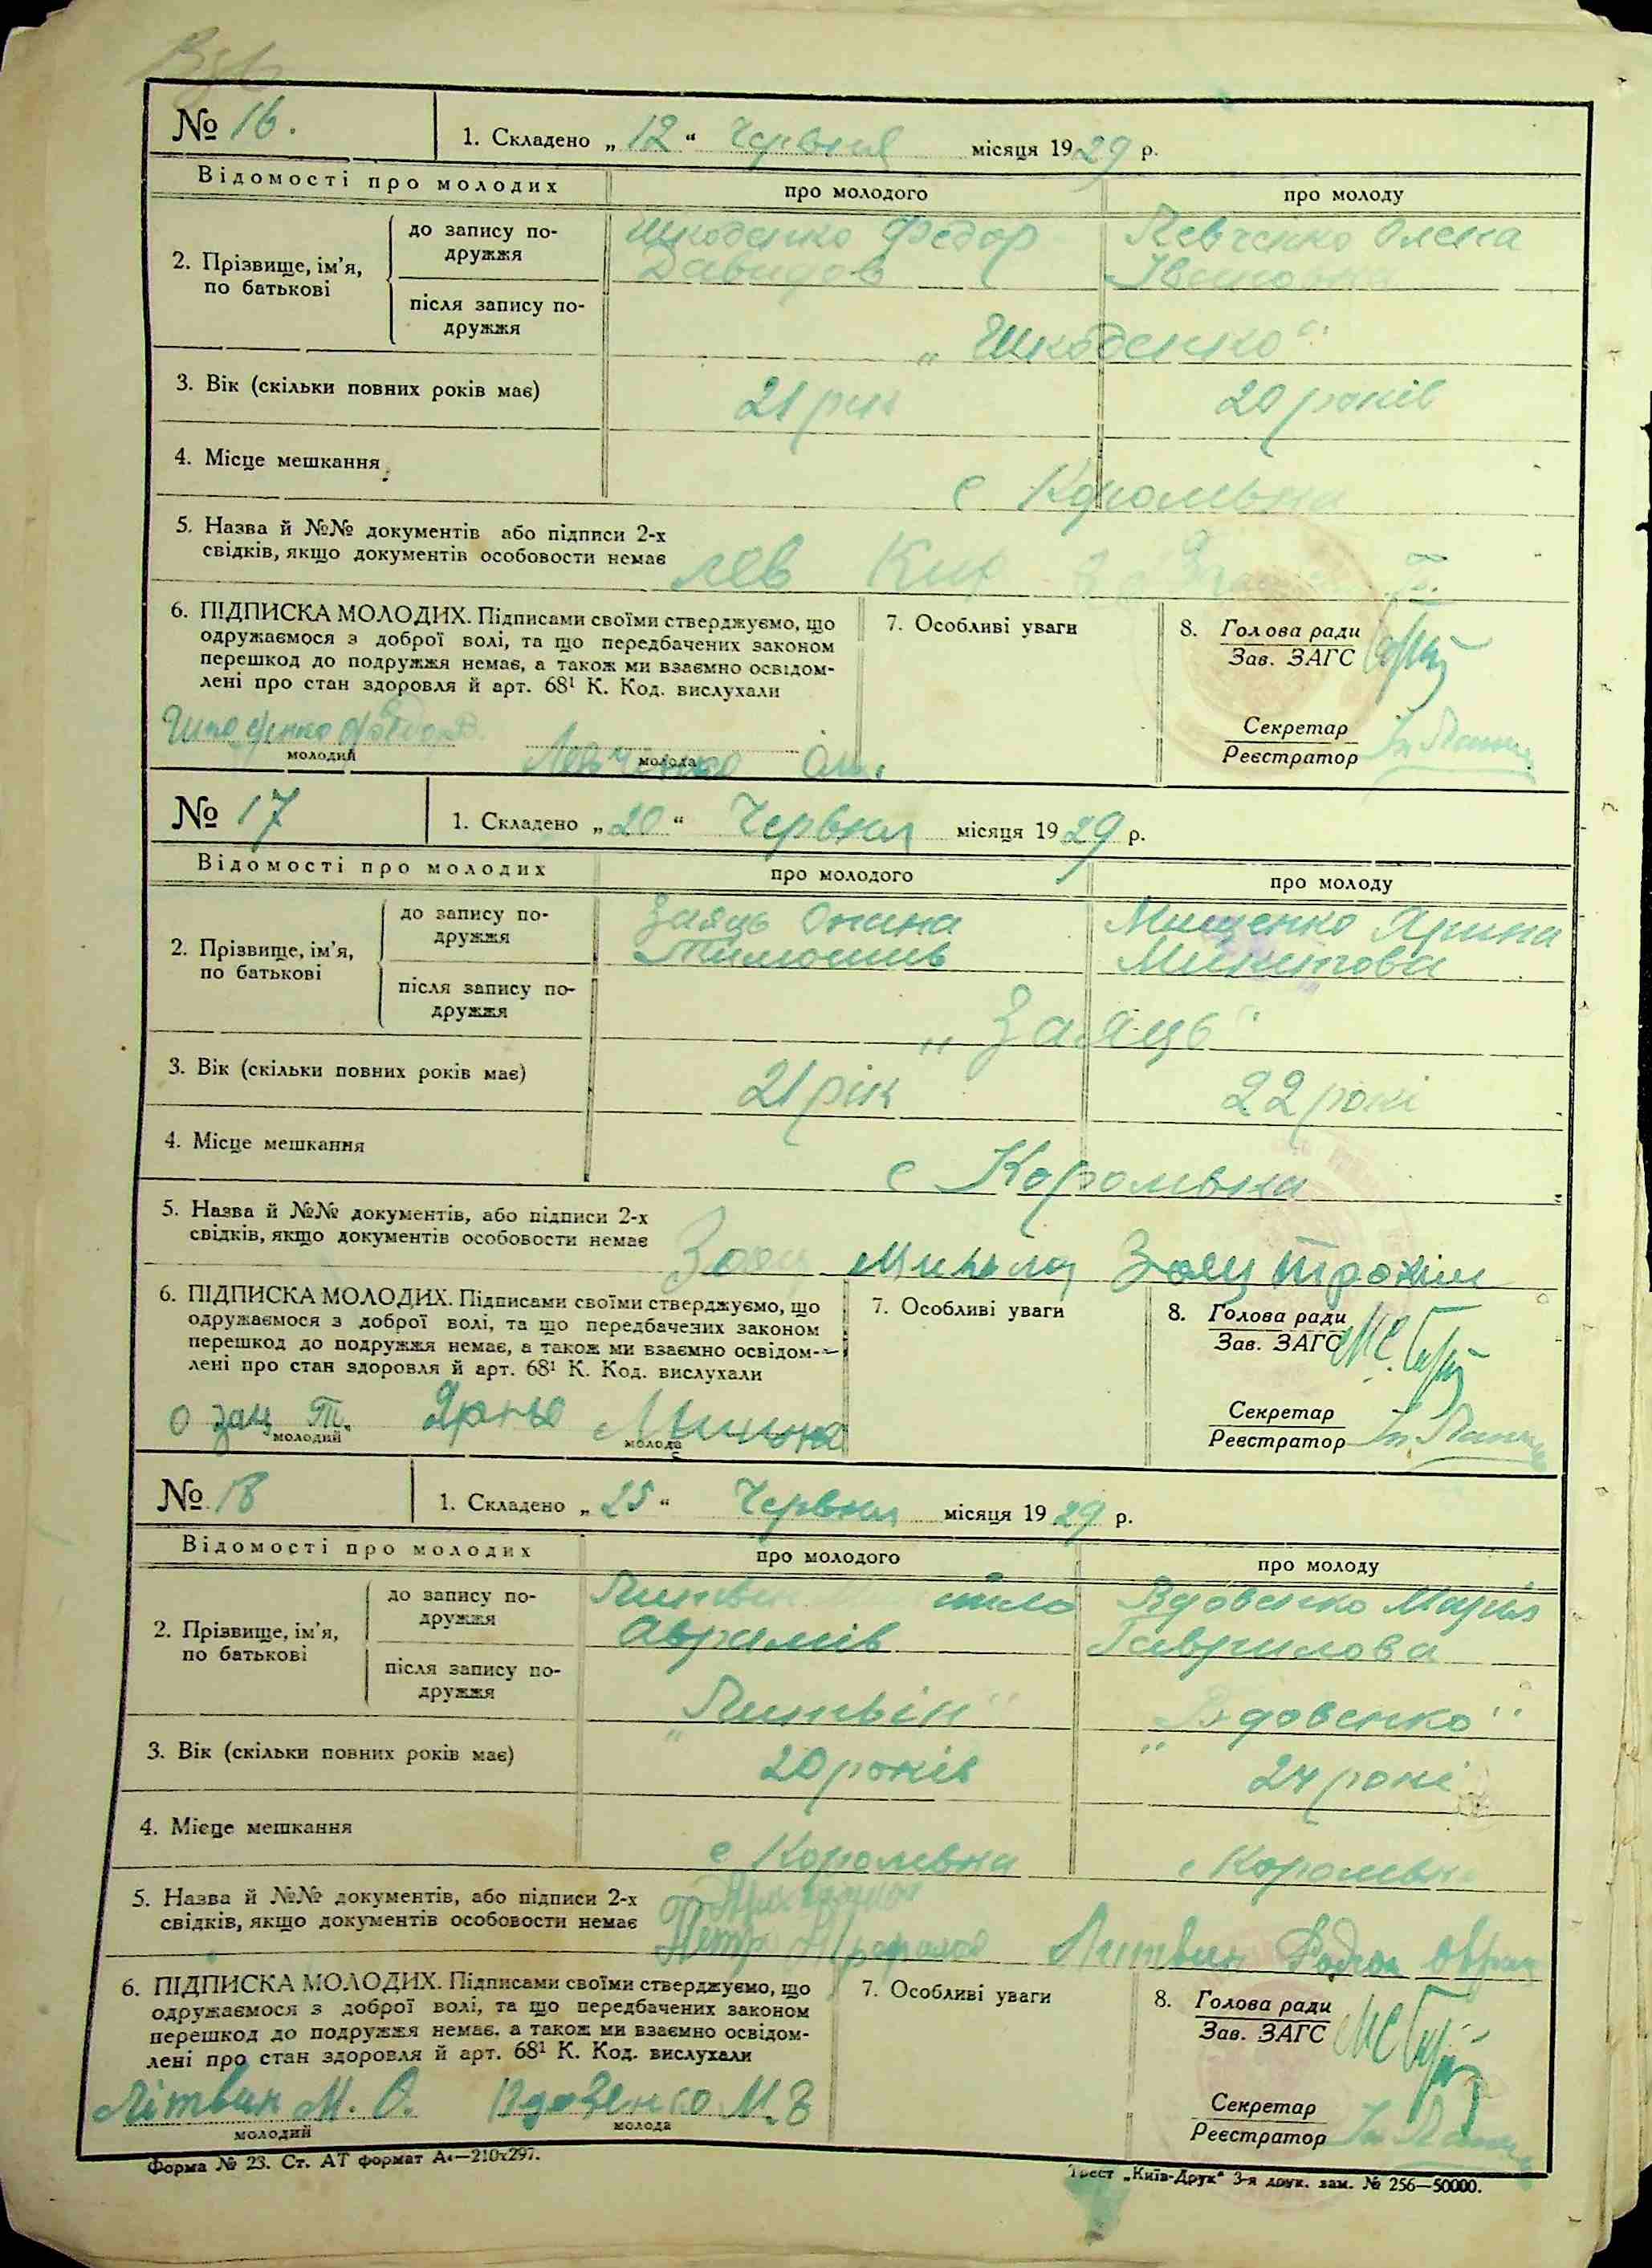 № 16.
1. Складено „12“ Червня місяця 1929 р.
Відомості про молодих про молодого про молоду
2. Прізвище, ім’я, по батькові
до запису по-
дружжя
Шкоденко Федор
Давидов
Левченко Олена
Івановна
після запису по-
дружжя
„Шкоденко“
3. Вік (скільки повних років має) 21 рік 20 років
4. Місце мешкання с Королівка
5. Назва й №№ документів або підписи 2-х
свідків, якщо документів особовости немає
6. ПІДПИСКА МОЛОДИХ. Підписами своїми стверджуємо, що
одружаємося з доброї волі, та що передбачених законом
перешкод до подружжя немає, а також ми взаємно освідом-
лені про стан здоровля й арт. 68¹ К. Код. вислухали
7. Особливі уваги
8. Голова ради
Зав. ЗАГС
Секретар
Реєстратор
молодий
Левченко Ол.
молода
№ 17
1. Складено „20“ Червня місяця 1929 р.
Відомості про молодих про молодого про молоду
2. Прізвище, ім’я,
по батькові
до запису по-
дружжя
Заяць Онана
Тимошів
Мищенко Ярина
Микитова
після запису по-
дружжя
„Заяць“
3. Вік (скільки повних років має) 21 рік 22 рокі
4. Місце мешкання
с Королівка
5. Назва й №№ документів, або підписи 2-х
свідків, якщо документів особовости немає
Заяц Микола Заяц Трохим
6. ПІДПИСКА МОЛОДИХ. Підписами своїми стверджуємо, що
одружаємося з доброї волі, та що передбачених законом
перешкод до подружжя немає, а також ми взаємно освідом-
лені про стан здоровля й арт. 68¹ К. Код. вислухали
7. Особливі уваги
8. Голова ради
Зав. ЗАГС
Секретар
Реєстратор
молодий
молода
№ 18
1. Складено „25“ Червня місяця 1929 р.
Відомості про молодих про молодого про молоду
2. Прізвище, ім’я,
по батькові
до запису по-
дружжя
Литвин
Аврамів
Вдовенко Марія
Гаврилова
після запису по-
дружжя
„Литвін“ „Вдовенко“
3. Вік (скільки повних років має) 20 років 24 рокі
4. Місце мешкання
с Королівка с Королівка
5. Назва й №№ документів, або підписи 2-х
свідків, якщо документів особовости немає
Петро Литвин Родіон
6. ПІДПИСКА МОЛОДИХ. Підписами своїми стверджуємо, що
одружаємося з доброї волі, та що передбачених законом
перешкод до подружжя немає, а також ми взаємно освідом-
лені про стан здоровля й арт. 68¹ К. Код. вислухали
7. Особливі уваги
8. Голова ради
Зав. ЗАГС
Секретар
Реєстратор
Літвин М. О. Вдовенко М. В
молодий молода
Форма № 23. Ст. АТ формат А4—210х297.
Трест „Київ-Друк“ 3-я друк. зам. № 256—50000.